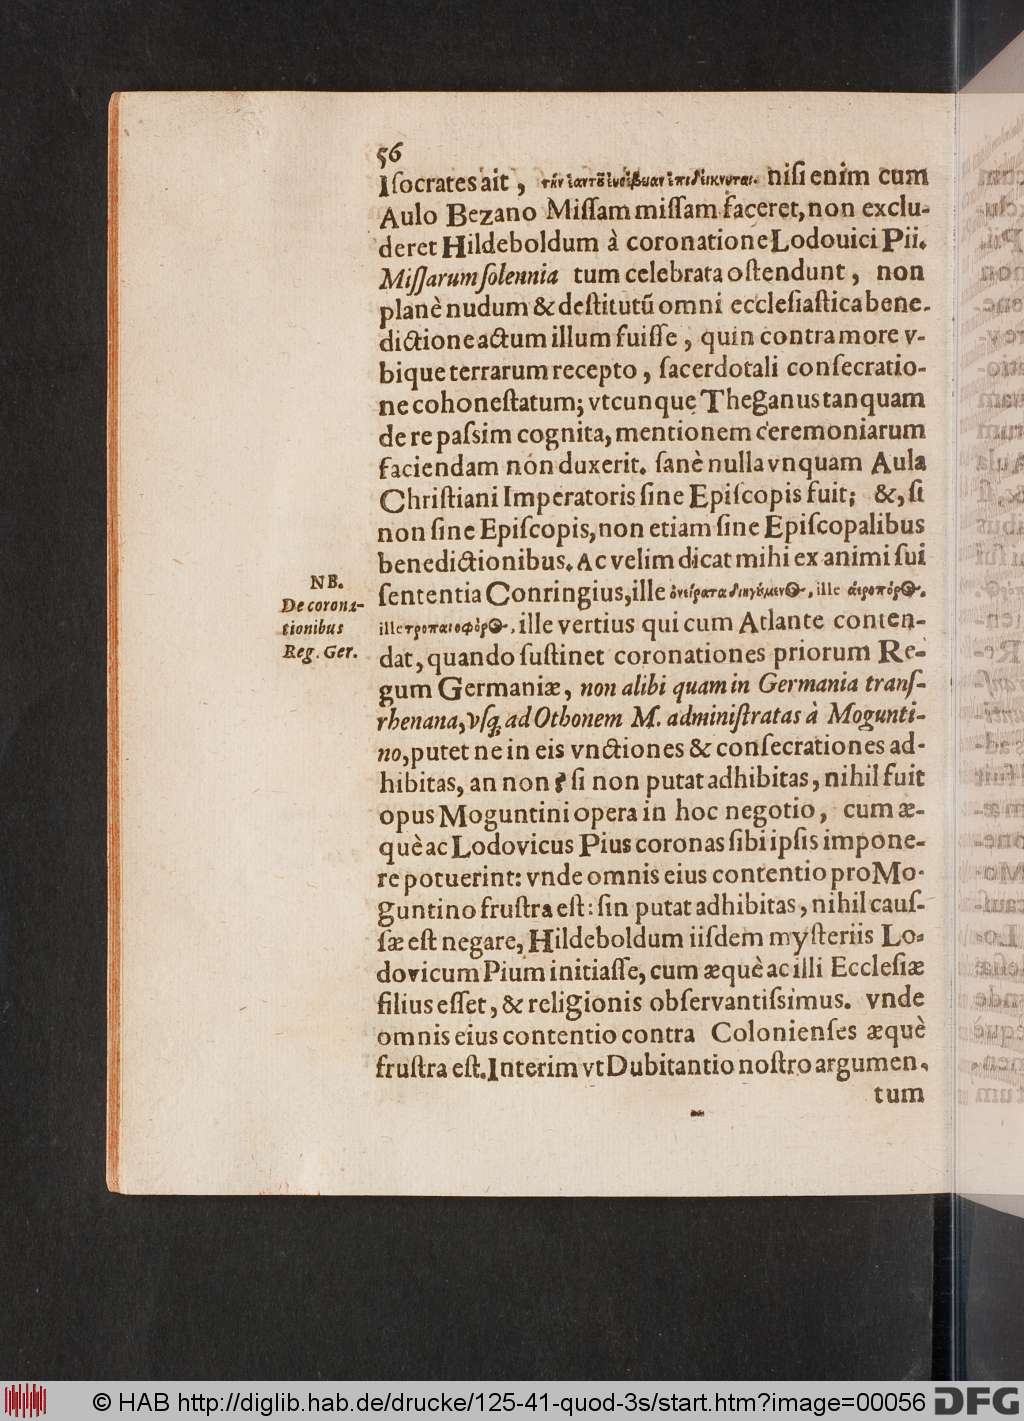 56
Iſocrates ait, τὴν ἑαυτοῦ εὐσέβειαν ἐπιδείκνυται. niſi enim cum
Aulo Bezano Miſſam miſſam faceret, non exclu-
deret Hildeboldum à coronatione Lodouici Pii.
Miſſarum ſolennia tum celebrata oſtendunt, non
planè nudum & deſtitutū omni eccleſiaſtica bene-
dictione actum illum fuiſſe, quin contra more v-
bique terrarum recepto, ſacerdotali conſecratio-
ne cohoneſtatum; vtcunque Theganus tanquam
de re paſsim cognita, mentionem ceremoniarum
faciendam non duxerit. ſanè nulla vnquam Aula
Chriſtiani Imperatoris ſine Epiſcopis fuit; &, ſi
non ſine Epiſcopis, non etiam ſine Epiſcopalibus
benedictionibus. Ac velim dicat mihi ex animi ſui
NB.
De corona-
tionibus
Reg. Ger.
ſententia Conringius, ille ὀνείρατα διηγύμενος, ille ἀεροπόρος,
ille τροπαιοφόρος, ille vertius qui cum Atlante conten-
dat, quando ſuſtinet coronationes priorum Re-
gum Germaniæ, non alibi quam in Germania tranſ-
rhenana, vſq; ad Othonem M. adminiſtratas à Mogunti-
no, putet ne in eis vnctiones & conſecrationes ad-
hibitas, an non? ſi non putat adhibitas, nihil fuit
opus Moguntini opera in hoc negotio, cum æ-
què ac Lodovicus Pius coronas ſibi ipſis impone-
re potuerint: vnde omnis eius contentio pro Mo-
guntino fruſtra eſt: ſin putat adhibitas, nihil cauſ-
ſæ eſt negare, Hildeboldum iiſdem myſteriis Lo-
dovicum Pium initiaſſe, cum æquè ac illi Eccleſiæ
filius eſſet, & religionis obſervantiſsimus. vnde
omnis eius contentio contra Colonienſes æquè
fruſtra eſt. Interim vt Dubitantio noſtro argumen-
tum
© HAB http://diglib.hab.de/drucke/125-41-quod-3s/start.htm?image=00056
DFG